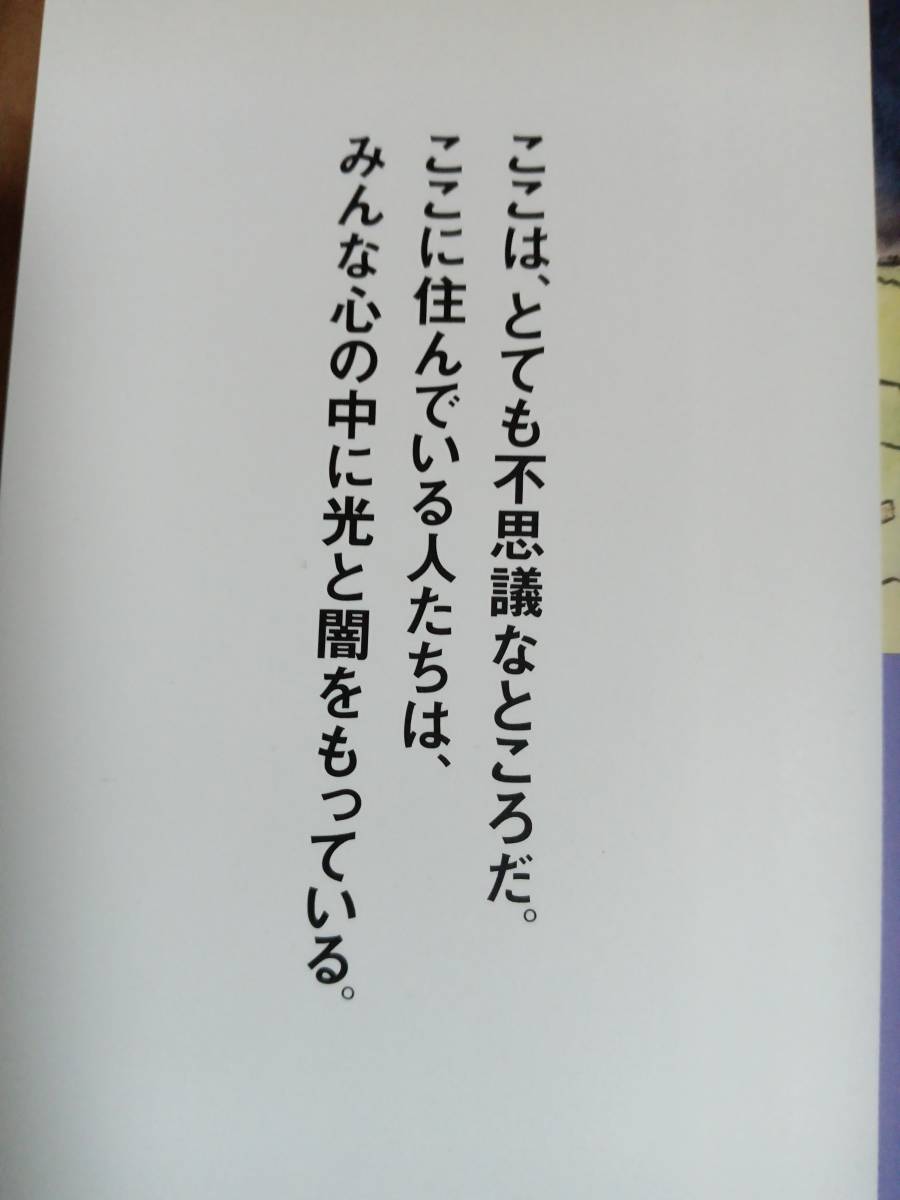 ここは、とても不思議なところだ。
ここに住んでいる人たちは、
みんな心の中に光と闇をもっている。